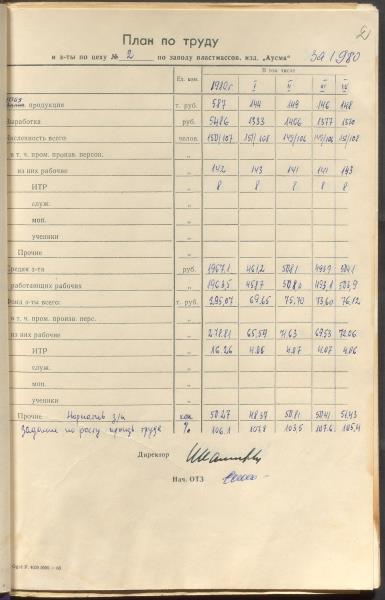 2
План по труду
и з-ты по цеху № 2 по заводу пластмассов. изд. „Аусма" за 1980
Ед. изм. 1980 г. В том числе
I II III IV
продукция т. руб. 587 144 149 146 148
Выработка руб. 5486 1333 1406 1377 1370
Численность всего челов. 150/107 151/108 149/106 149/106 151/108
в т. ч. пром. произв. персон. „
из них рабочие „ 142 143 141 141 143
ИТР „ 8 8 8 8 8
служ. „
моп. „
ученики „
Прочие „
Средняя з-та руб. 1967,1 461,2 508,1 493,9 504,1
работающих рабочих „ 1963,5 458,7 508,0 493,1 503,9
Фонд з-ты всего: т. руб. 295,07 69,65 75,70 73,60 76,12
в т. ч. пром. произв. перс. „
из них рабочие „ 278,81 65,59 71,63 69,53 72,06
ИТР „ 16,26 4.06 4.07 4.07 4.06
служ. „
моп. „
ученики „
Прочие Норматив з/п коп 50.27 48.37 50.81 50.41 51.43
Задание по росту произв. труда % 106,1 107.8 103,5 107.6 105,4
Директор
Нач. ОТЗ